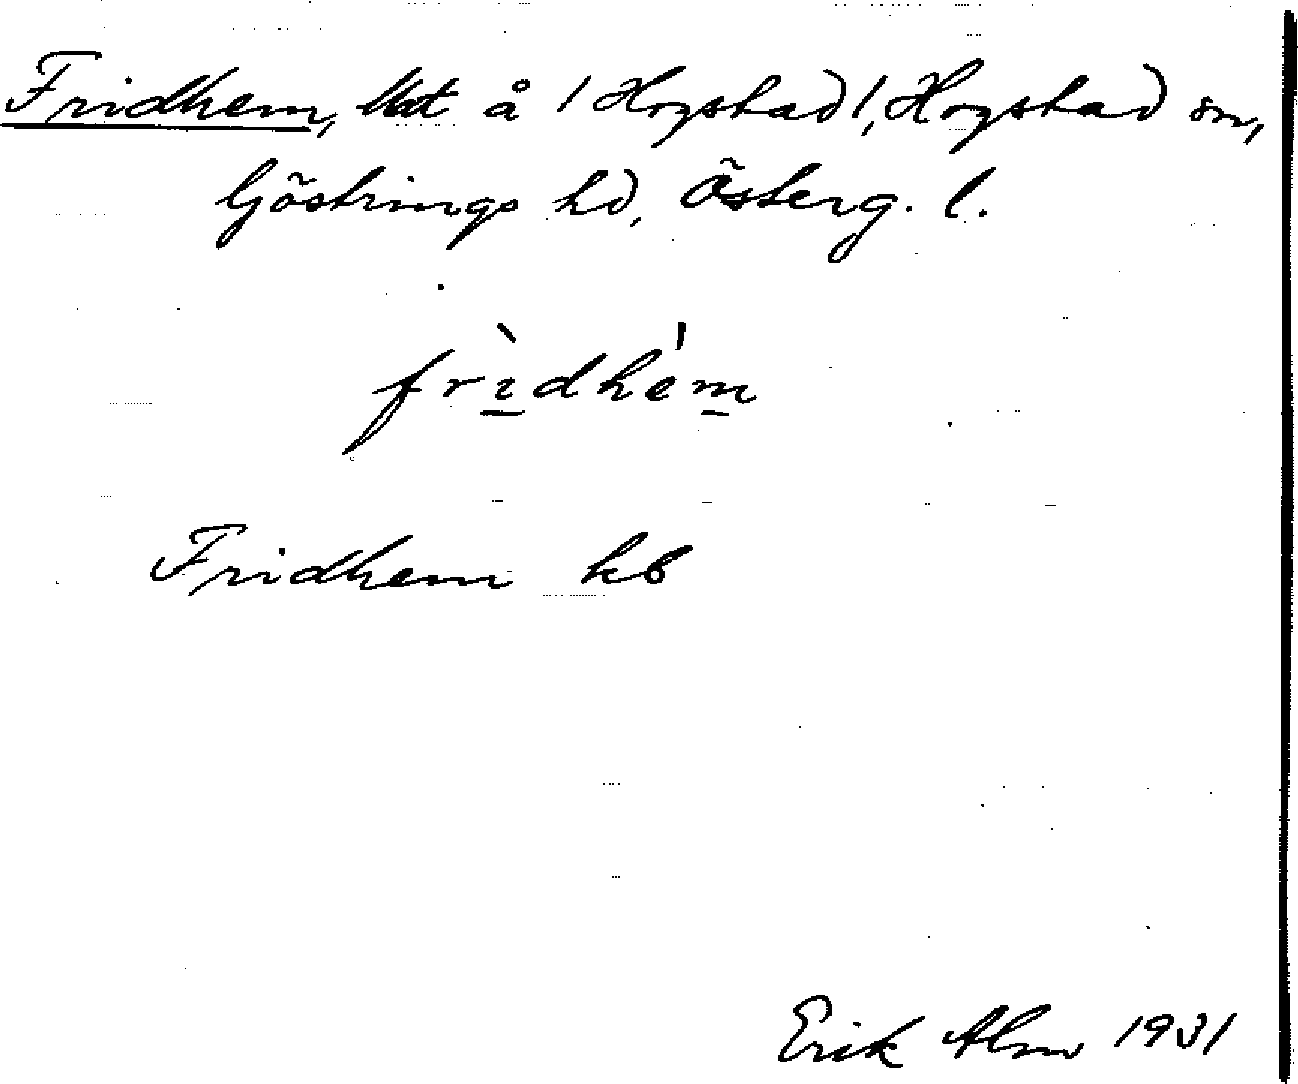 Fridhem, lht å /Hogstad/, Hogstad sn,
Göstrings hd, Österg. l.
frìdhém
Fridhem kb
Erik Alm 1931